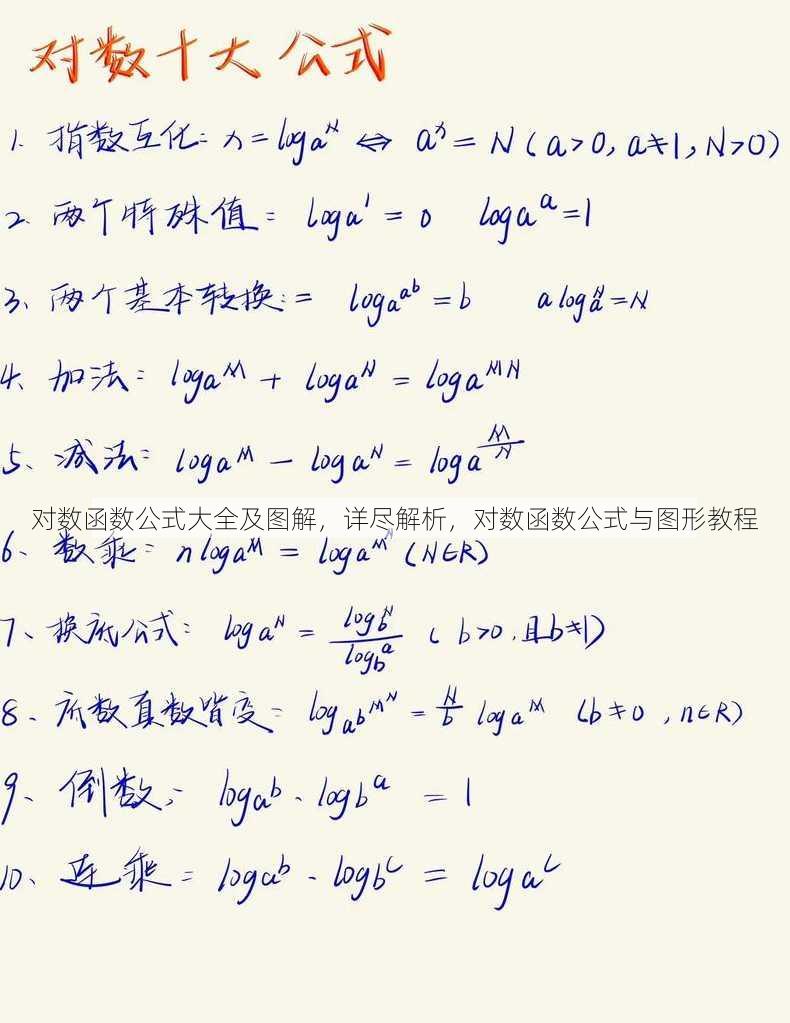 对数十大公式
1. 指数互化: x=logₐᴺ ⇔ aˣ=N(a>0,a≠1,N>0)
2. 两个特殊值: logₐ¹=0 logₐᵃ=1
3、两个基本转换:= log_a^{a^b}=b a^{log_a^N}=N
4、加法: logₐᴹ + logₐᴺ = logₐᴹᴺ
5、减法: log_a^M - log_a^N = log_a^{M/N}
对数函数公式大全及图解，详尽解析，对数函数公式与图形教程
6、数乘: nlog_a^M = log_a^{M^n} (N∈R)
7、换底公式: log_a^N = log_b^N / log_b^a (b>0,且b≠1)
8、底数真数皆变: log_{a^b}^{M^N} = N/b log_a^M (b≠0,n∈R)
9、倒数: log_a^b · log_b^a = 1
10、连乘: log_a^b · log_b^c = log_a^c